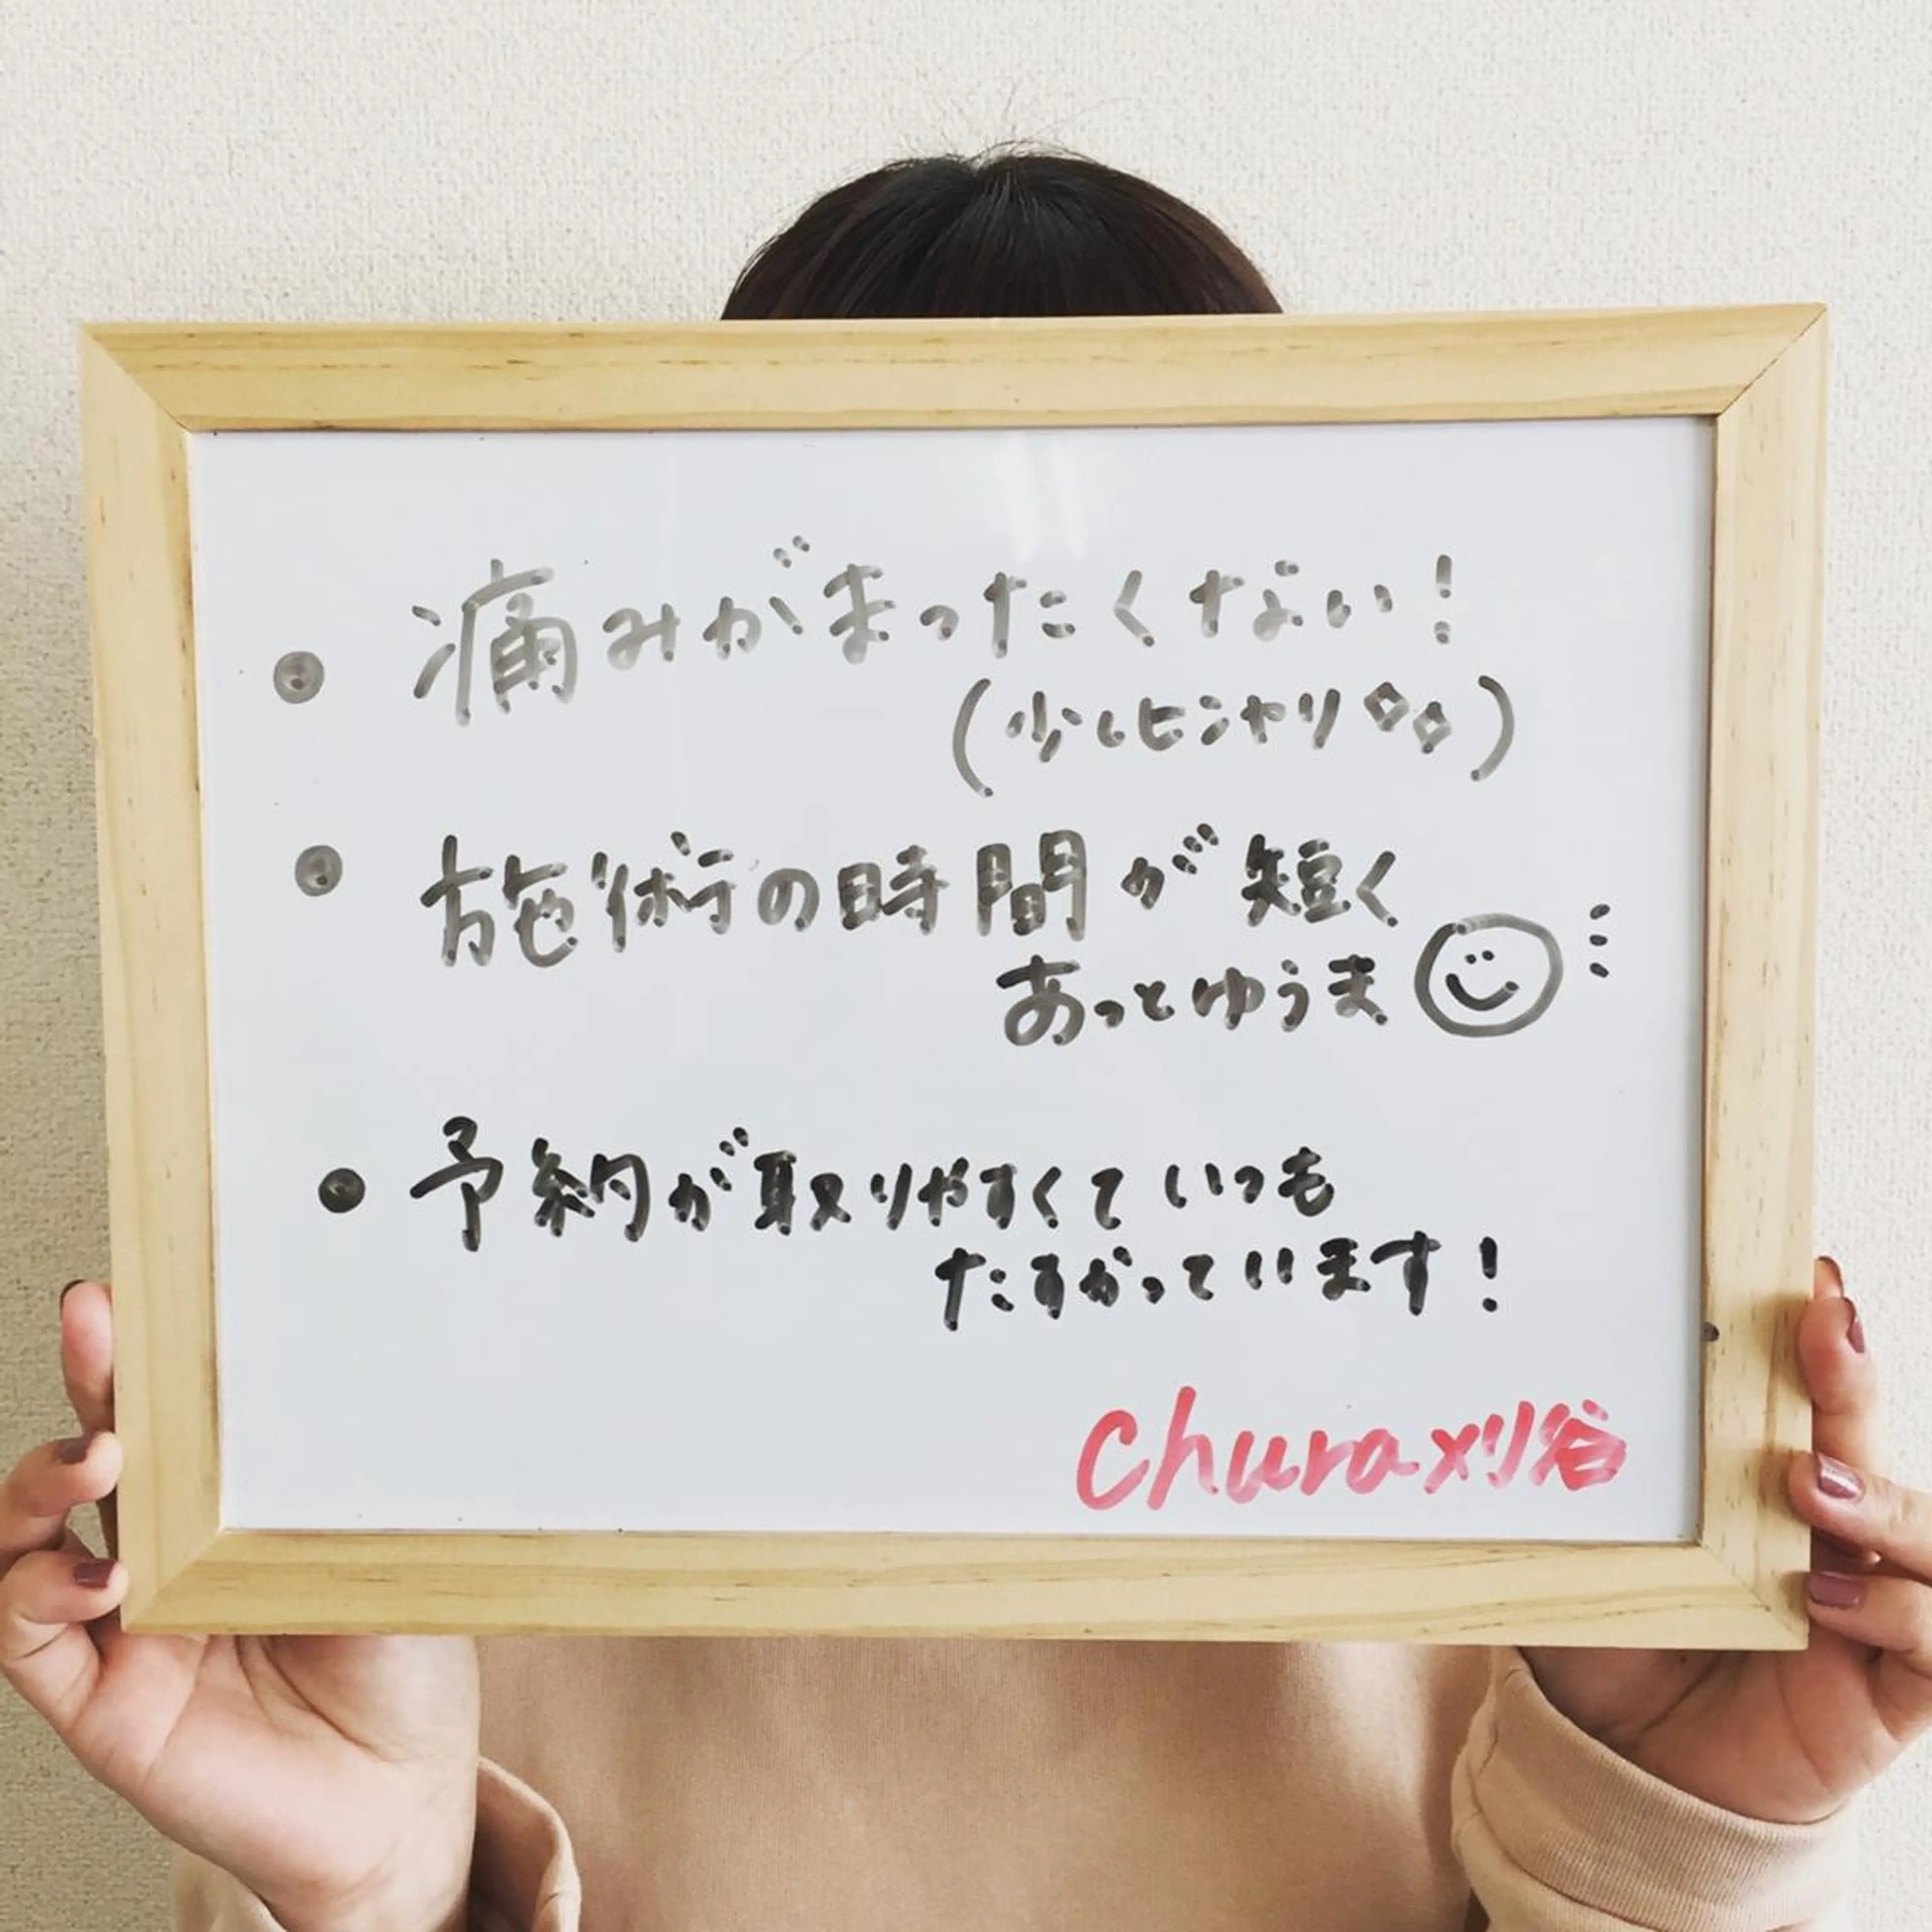 • 痛みがまったくない!
(少しヒンヤリ✧✧)
• 施術の時間が短く
あっとゆうま
• 予約が取りやすくていつも
たすかっています!
Chura刈谷